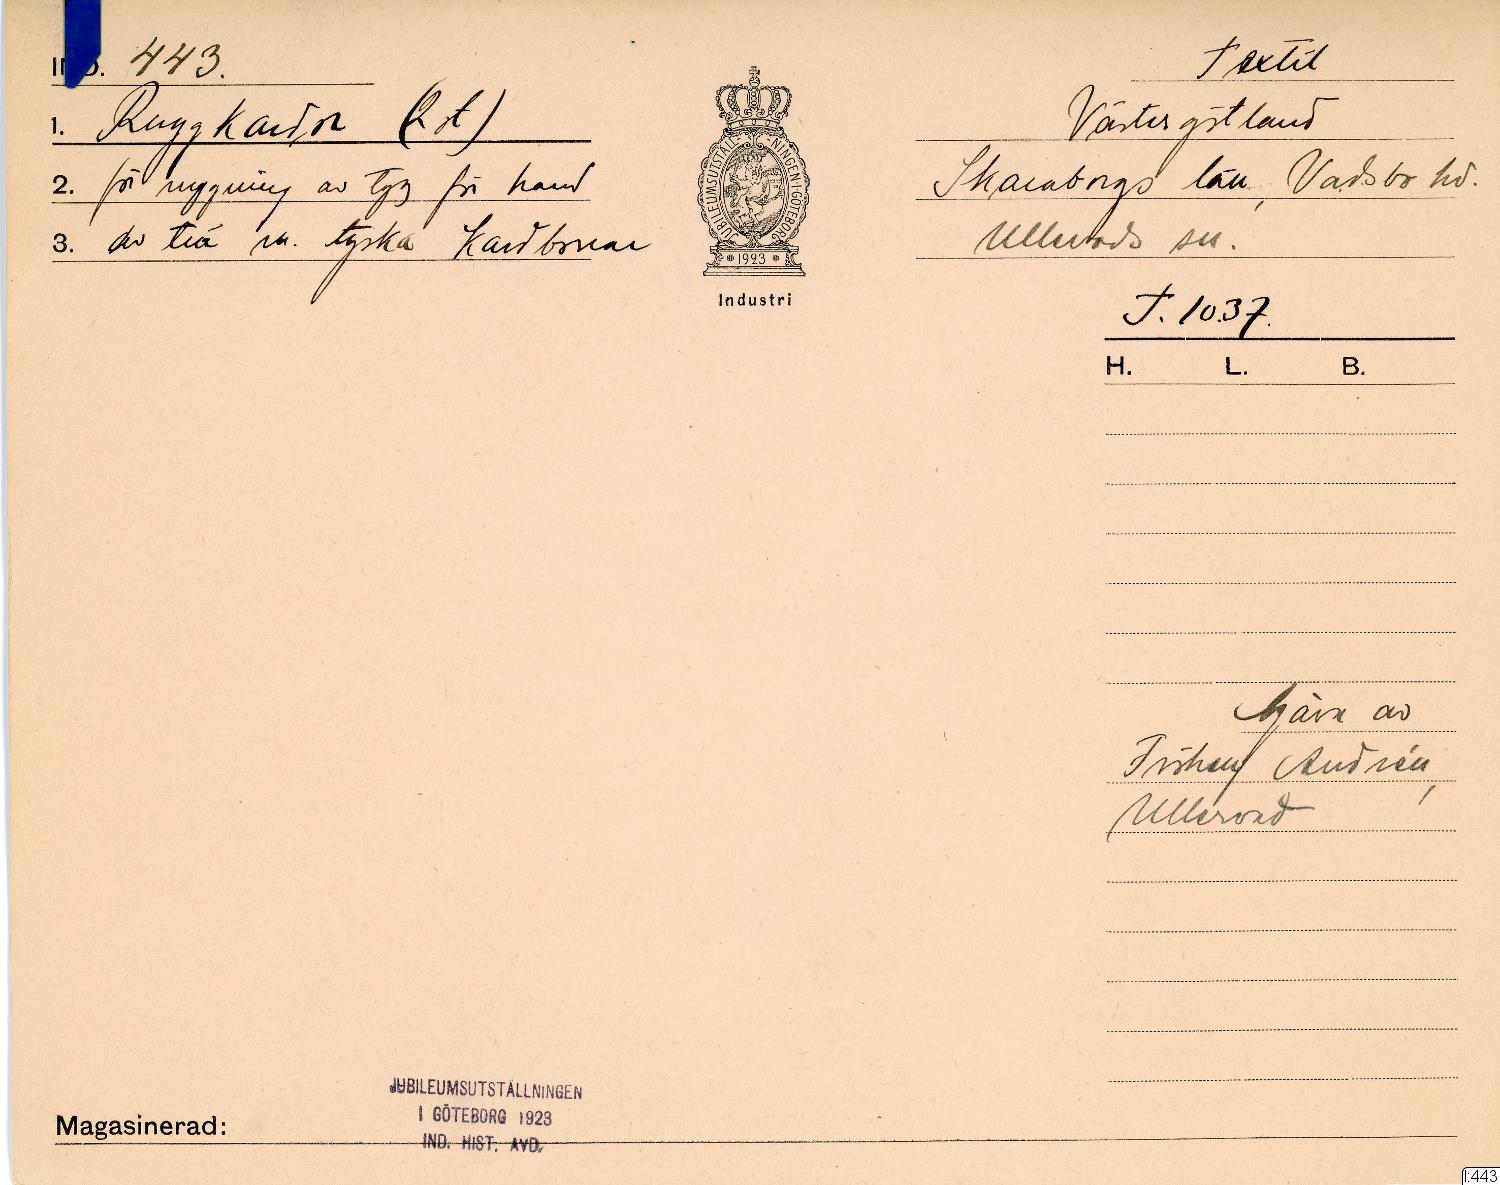 IND. 443.
1. Ruggkardor (2 st)
2. för ruggning av tyg för hand
3. av trä m. tyska kardborrar
JUBILEUMSUTSTÄLLNINGEN I GÖTEBORG
1923
Industri
Textil
Västergötland
Skaraborgs län, Vadsbo hd.
Ullervads sn.
T. 1037.
H. L. B.
Gåva av
Fröken Andrén,
Ullervad
JUBILEUMSUTSTÄLLNINGEN
I GÖTEBORG 1923
IND. HIST. AVD.
Magasinerad:
I:443